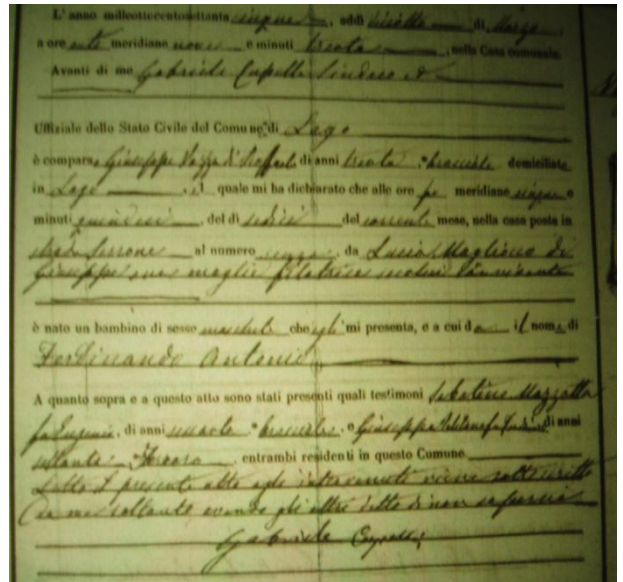 L'anno milleottocentosettanta cinque, addì dieciotto di Marzo,
a ore anti meridiane nove e minuti trenta, nella Casa comunale.
Avanti di me Gabriele Cupelli Sindaco
Uffiziale dello Stato Civile del Comune di Lago
è comparso Giuseppe di Raffaele di anni trenta bracciale domiciliato
in Lago, il quale mi ha dichiarato che alle ore meridiane cinque e
minuti quindici, del dì sedici del corrente mese, nella casa posta in
strada Serrone al numero, da Lucia Magliano di
Giuseppe sua moglie filatrice secolui convivente
è nato un bambino di sesso maschile che egli mi presenta, e a cui da il nome di
Ferdinando Antonio
A quanto sopra e a questo atto sono stati presenti quali testimoni Sabatino Mazzotta
fu Eugenio, di anni bracciale, e Giuseppe di anni
entrambi residenti in questo Comune.
Letto il presente atto agli intervenuti viene sottoscritto
da me soltanto avendo gli altri detto di non saperlo
Gabriele Cupelli